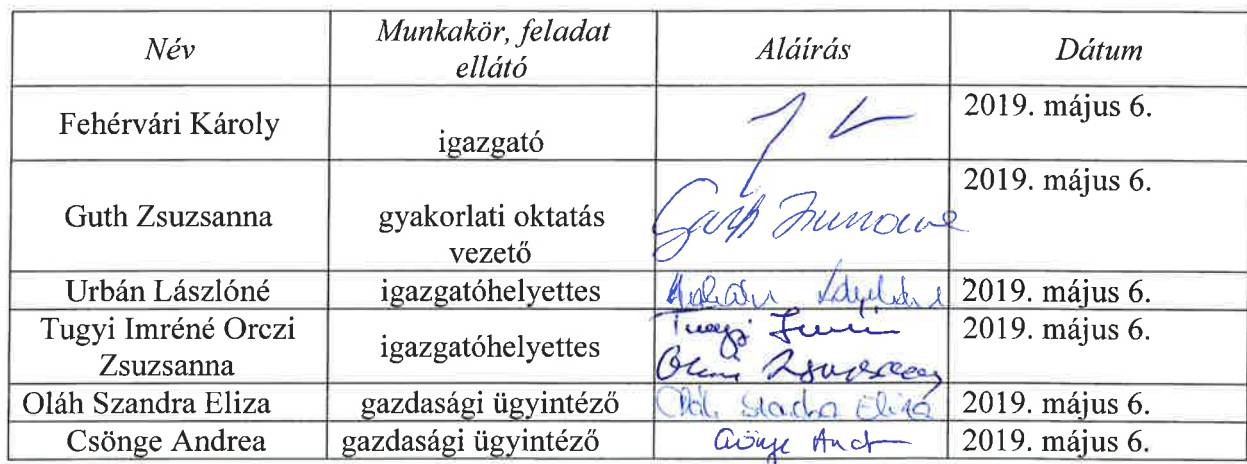 Név Munkakör, feladat ellátó Aláírás Dátum
Fehérvári Károly igazgató 2019. május 6.
Guth Zsuzsanna gyakorlati oktatás vezető Guth Zsuzsanna 2019. május 6.
Urbán Lászlóné igazgatóhelyettes Urbán Lászlóné 2019. május 6.
Tugyi Imréné Orczi Zsuzsanna igazgatóhelyettes Tugyi Imréné Orczi Zsuzsanna 2019. május 6.
Oláh Szandra Eliza gazdasági ügyintéző Oláh Szandra Eliza 2019. május 6.
Csönge Andrea gazdasági ügyintéző Csönge And 2019. május 6.